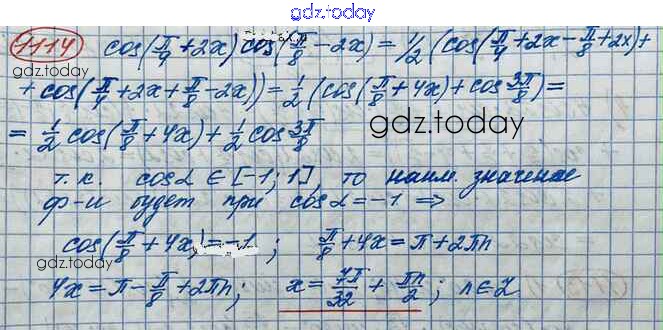 gdz.today
1114 cos(π/4 + 2x) cos(π/8 − 2x) = 1/2 (cos(π/4 + 2x − π/8 + 2x) +
gdz.today
+ cos(π/4 + 2x + π/8 − 2x)) = 1/2 (cos(π/8 + 4x) + cos 3π/8) =
gdz.today
= 1/2 cos(π/8 + 4x) + 1/2 cos 3π/8
т.к. cos α ∈ [−1; 1], то наим. значение
ф-и будет при cos α = −1 ⇒
cos(π/8 + 4x) = −1 ; π/8 + 4x = π + 2πn
gdz.today
4x = π − π/8 + 2πn; x = 7π/32 + πn/2 ; n ∈ Z